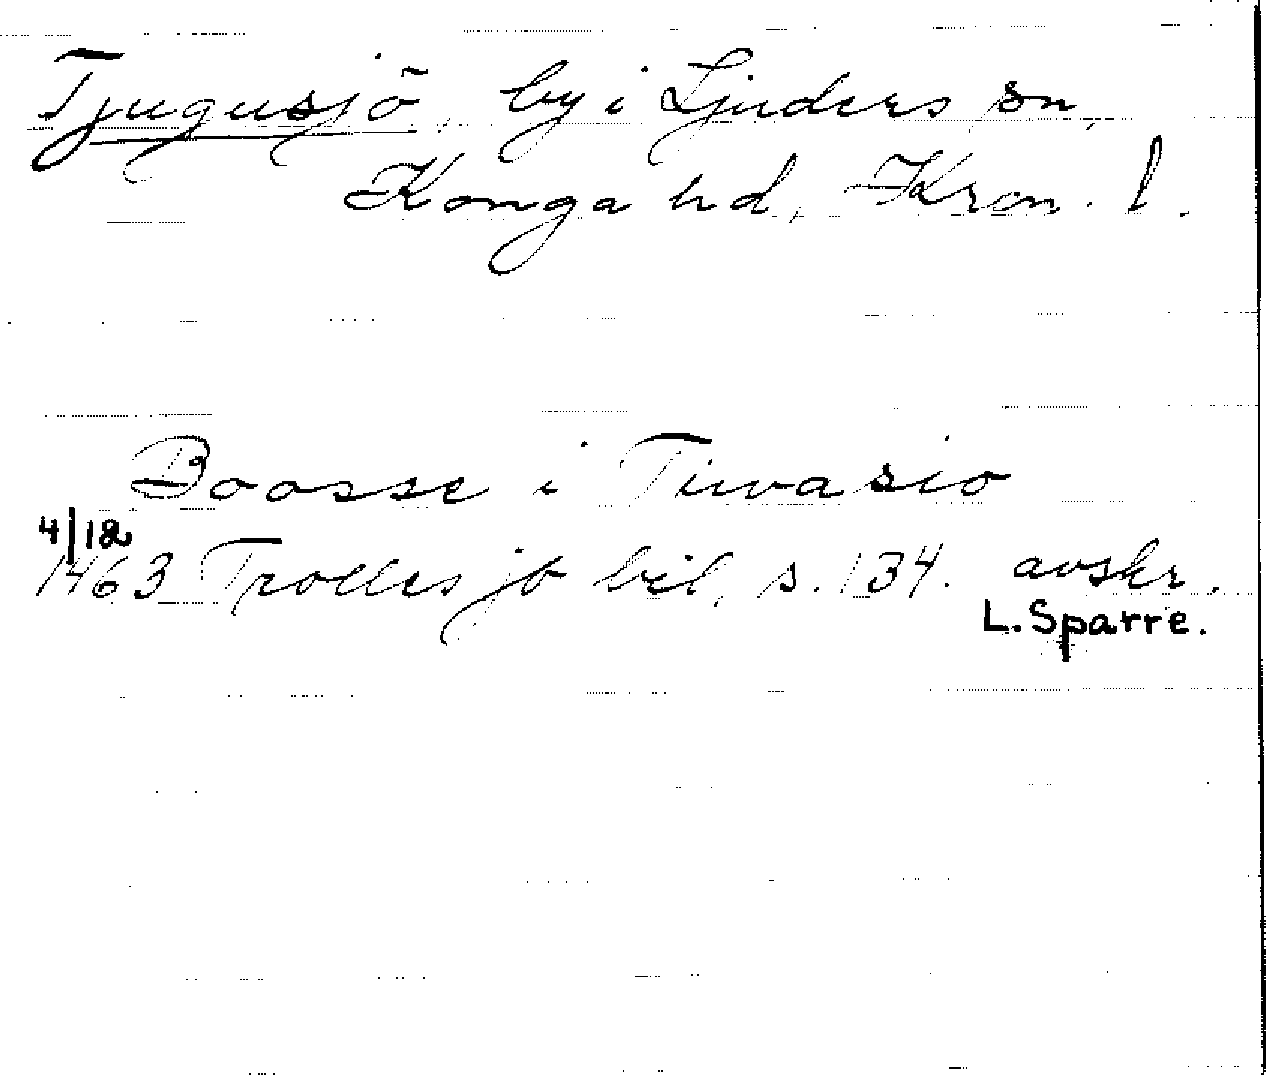 Tjugusjö, by i Ljuders sn,
Konga hd, Kron. l.
Boosse i Tiuvasio
4/12
1463 Trolles jb bil, s. 134. avskr.
L. Sparre.